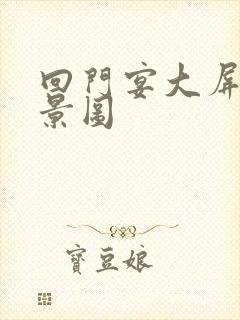 回門宴大屏
景圖
寶豆娘